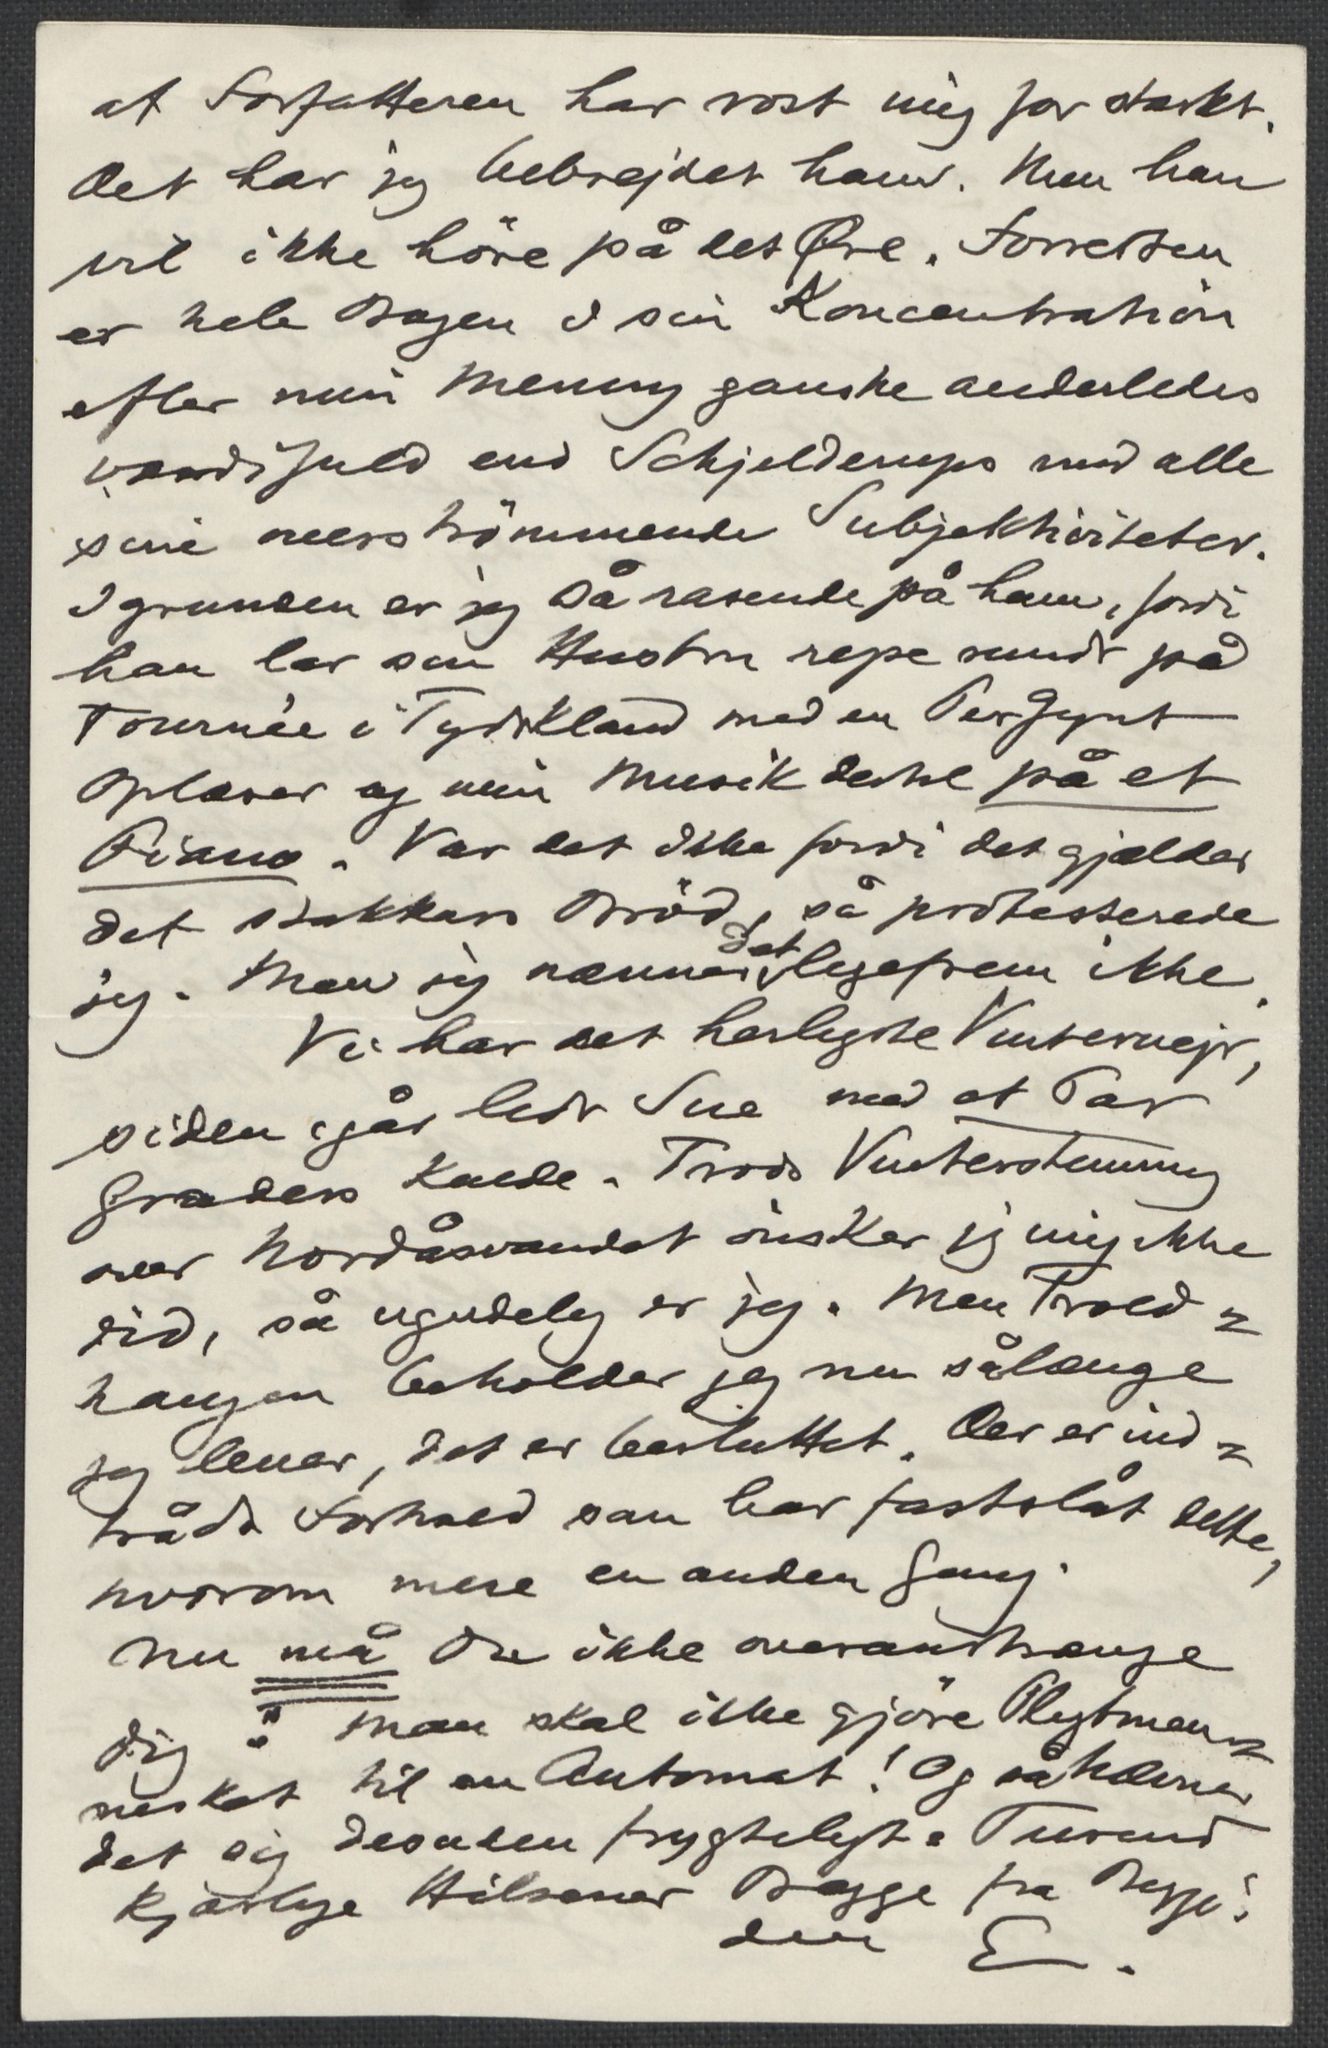 at Forfatteren har rost mig for stærkt.
Det har jeg bebrejdet ham. Men han
vil ikke höre på det Øre. Forresten
er hele Bogen i sin Koncentration
efter min Mening ganske anderledes
værdifuld end Schjelderups med alle
sine overströmmende Subjektiviteter.
I grunden er jeg så rasende på ham, fordi
han lar sin Hustru rejse rundt på
Tournée i Tyskland med en Peer Gynt
Oplæser og min Musik dertil på et
Piano. Var det ikke fordi det gjælder
det stakkars Bröd, så protesterede
jeg. Men jeg nænner det ligefrem ikke.
Vi har det herligste Vintervejr,
siden igår lidt Sne med et Par
Graders Kulde. Trods Vinterstemning
over Nordåsvandet önsker jeg mig ikke
did, så ugudelig er jeg. Men Trold=
haugen beholder jeg nu sålænge
jeg lever, det er besluttet. Der er ind=
trådt Forhold som har fastslåt dette,
hvorom mere en anden Gang.
Nu må Du ikke overanstrænge
dig! Man skal ikke gjöre Pligtmen=
nesket til en Automat! Og så hævner
det sig desuden frygteligt. Tusend
kjærlige Hilsener Begge fra Begge!
din E.